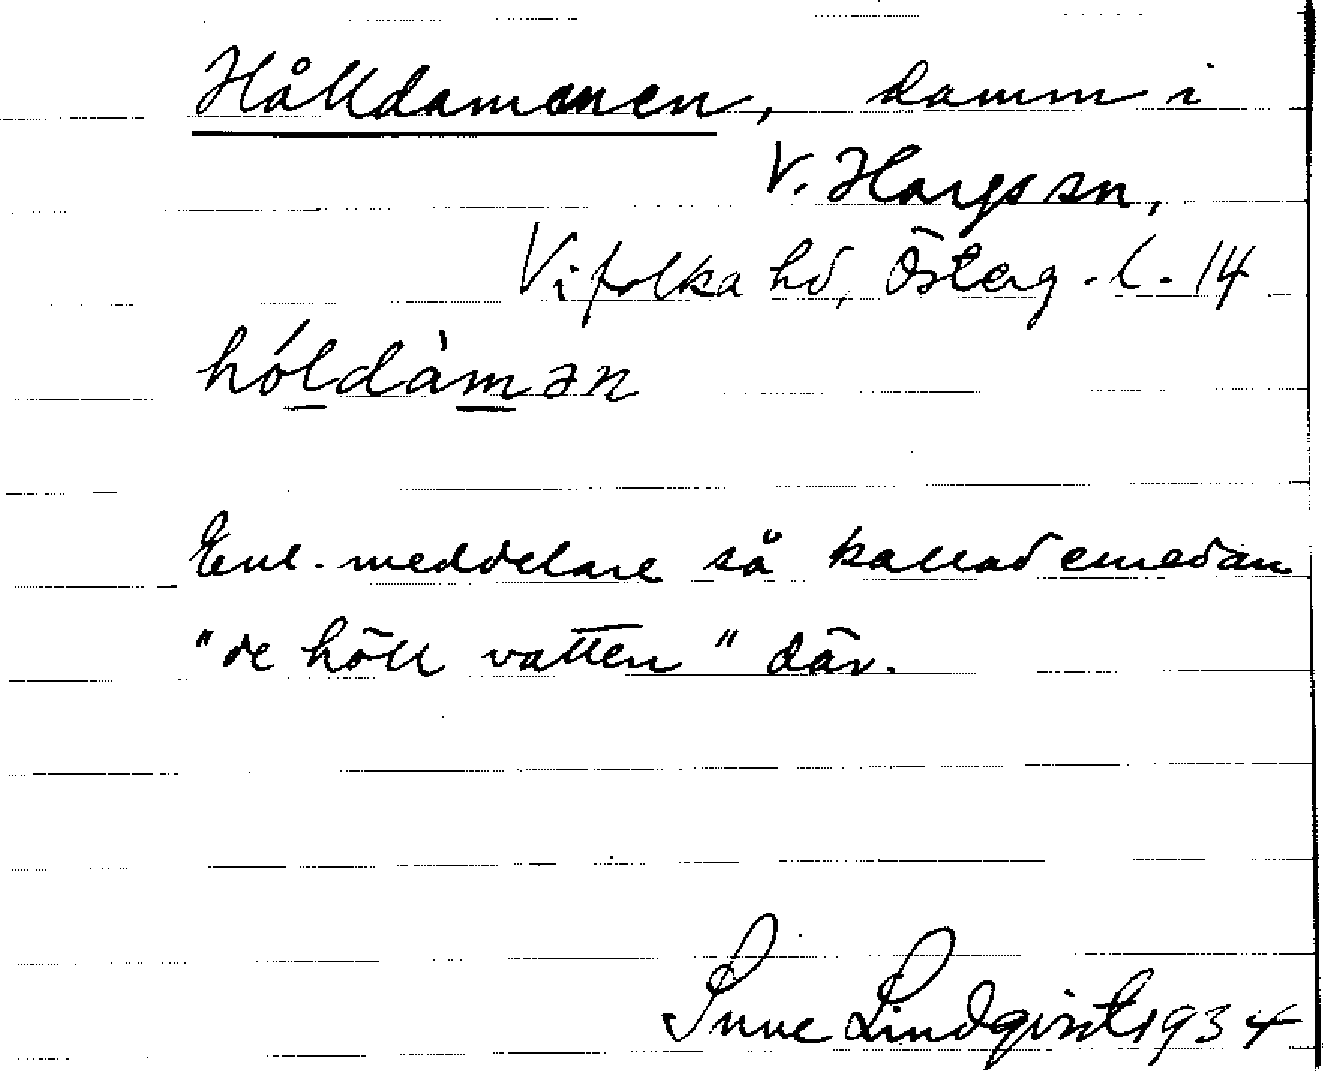 Hålldammen, damm i
V. Hargs sn,
Vifolka hd, Österg. l. 14
hóldàmən
Enl. meddelare så kallad emedan
"de höll vatten" där.
Sune Lindqvist 1934